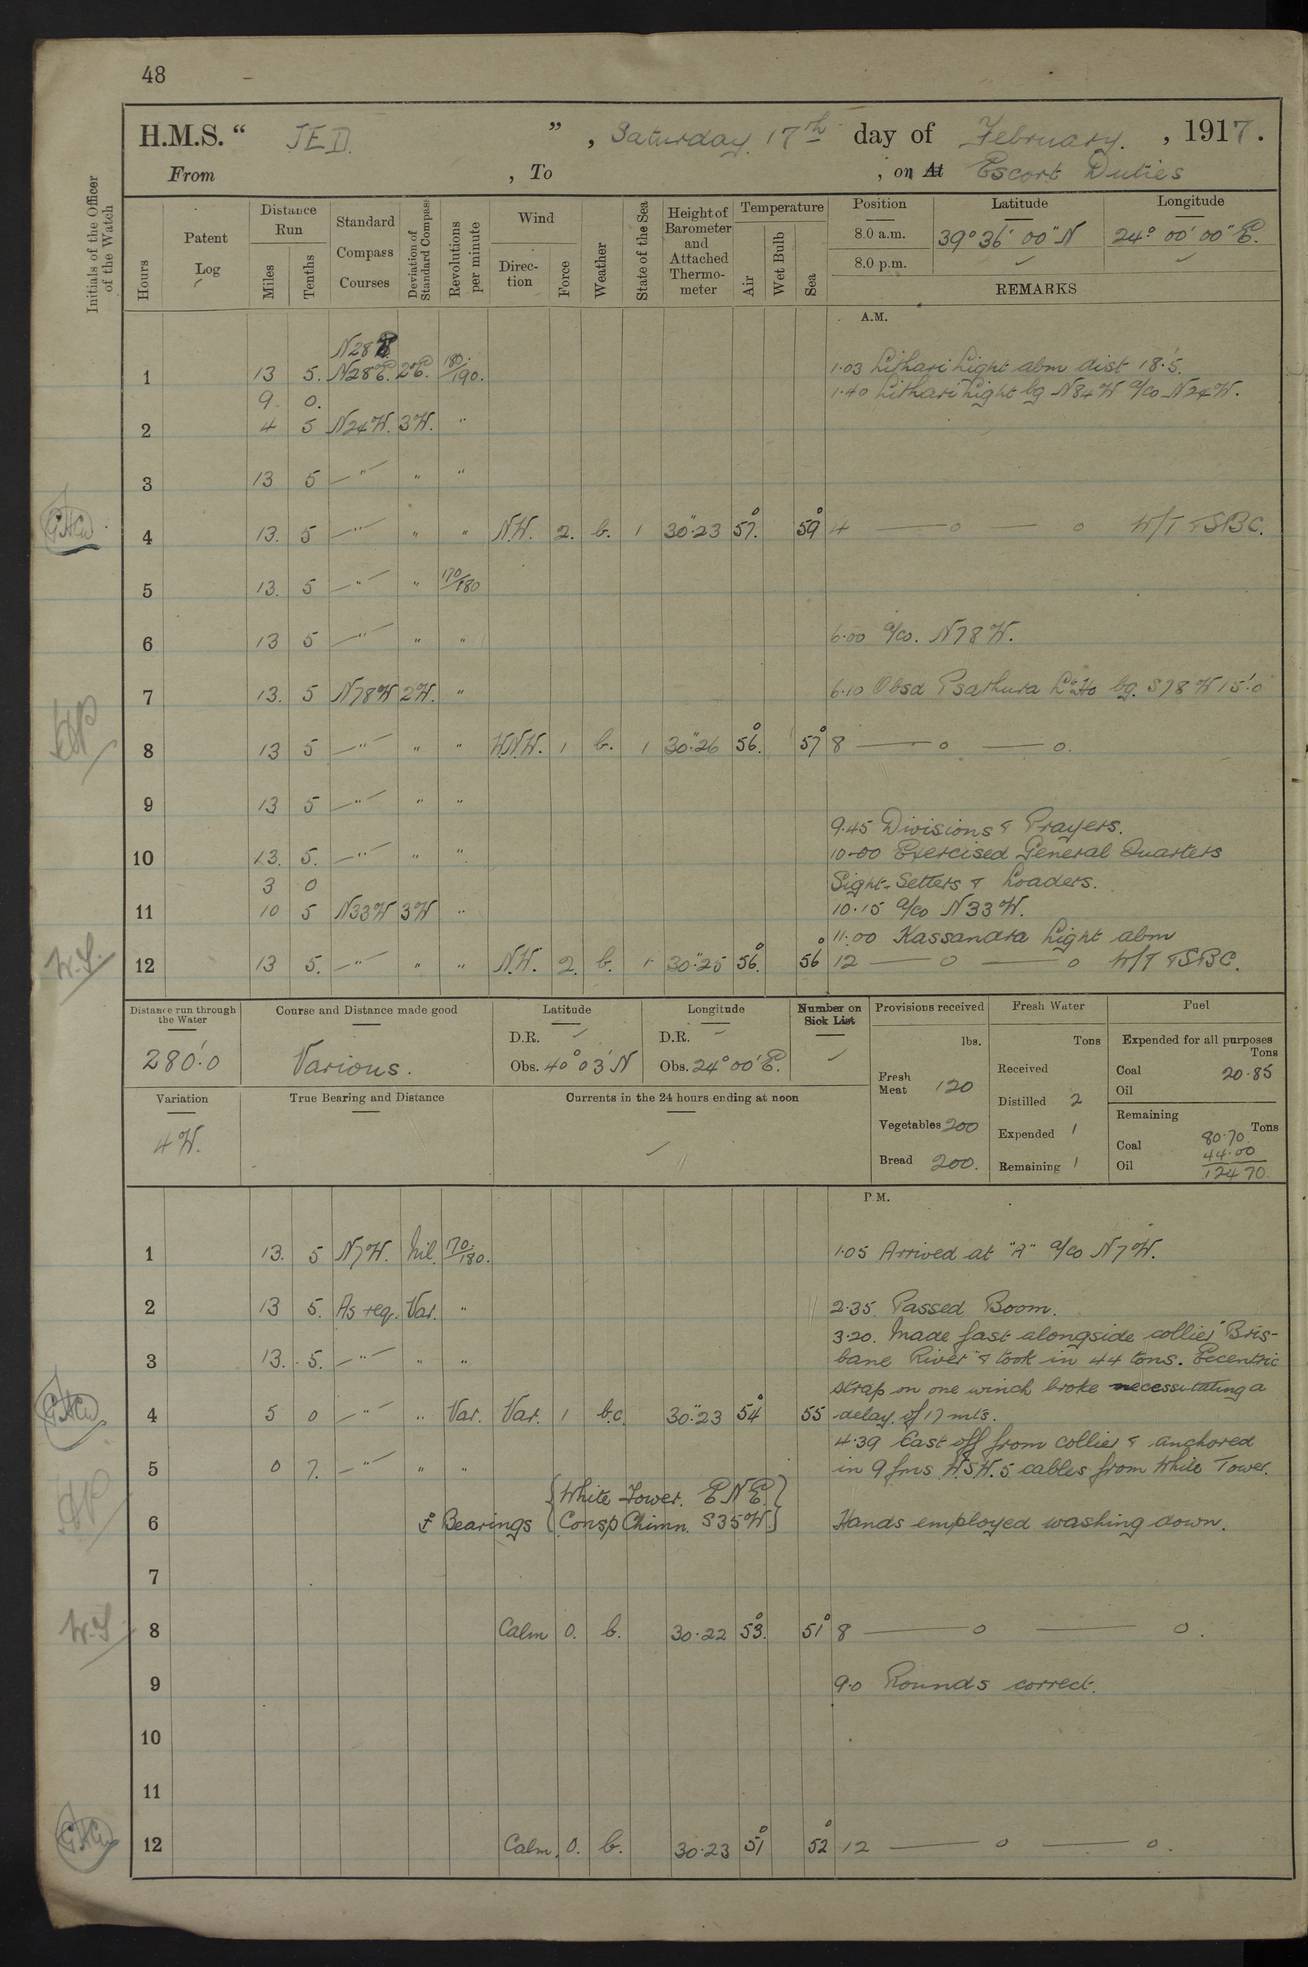 48
H.M.S. " JED. " , Saturday 17th day of February. , 1917.
From , To , on At Escort Duties
Initials of the Officer of the Watch
Hours
Patent Log
Distance Run
Miles
Tenths
Standard Compass Courses
Deviation of Standard Compass
Revolutions per minute
Wind
Direction
Force
Weather
State of the Sea
Height of Barometer and Attached Thermometer
Temperature
Air
Wet Bulb
Sea
Position Latitude Longitude
8.0 a.m. 39° 36' 00" N 24° 00' 00" E.
8.0 p.m.
REMARKS
A.M.
N28
1 13 5. N28E. 2°E. 180/190. 1.03 Lithari Light abm dist 18'.5.
9 0. 1.40 Lithari Light bg N84W a/co N24W.
2 4 5 N24W. 3W. "
3 13 5 — " — " "
4 13. 5 — " — " " N.W. 2. b. 1 30".23 57°. 59° 4 —— o —— o W/T & SBC.
5 13. 5 — " — " 170/180
6 13 5 — " — " " 6.00 a/co. N78W.
7 13. 5 N78W 2W. " 6.10 Obsd Psathura Lt Ho bg. S78W 15'.0
8 13 5 — " — " " W.N.W. 1 b. 1 30".26 56°. 57° 8 —— o —— o.
9 13 5 — " — " "
9.45 Divisions & Prayers.
10 13. 5. — " — " " 10.00 Exercised General Quarters
3 0 Sight-Setters & Loaders.
11 10 5 N33W 3W " 10.15 a/co N33W.
11.00 Kassandra Light abm
12 13 5. — " — " " N.W. 2. b. 1 30".25 56°. 56° 12 —— o —— o W/T & SBC.
Distance run through the Water
280'.0
Course and Distance made good
Various.
Latitude
D.R.
Obs. 40° 03' N
Longitude
D.R.
Obs. 24° 00' E.
Number on Sick List
Provisions received
lbs.
Fresh Meat 120
Vegetables 200
Bread 200.
Fresh Water
Tons
Received
Distilled 2
Expended 1
Remaining 1
Fuel
Expended for all purposes
Tons
Coal 20.85
Oil
Remaining
Tons
Coal 80.70
44.00
Oil 124.70
Variation
4W.
True Bearing and Distance
Currents in the 24 hours ending at noon
P.M.
1 13. 5 N7W. Nil 170/180. 1.05 Arrived at "A" a/co N7W.
2 13 5. As req. Var. " 2.35 Passed Boom.
3.20. Made fast alongside collier "Bris-
3 13. 5. — " — " " bane River" & took in 44 tons. Eccentric
strap on one winch broke necessitating a
4 5 0 — " — " Var. Var. 1 b.c. 30".23 54° 55 delay of 17 mts.
4.39 Cast off from collier & anchored
5 0 7. — " — " " in 9 fms W.S.W. 5 cables from White Tower.
White Tower. ENE.
6 Bearings Consp Chimn. S35W. Hands employed washing down.
7
8 Calm 0. b. 30.22 53°. 51° 8 —— o —— o.
9 9.0 Rounds correct.
10
11
12 Calm. 0. b. 30.23 51° 52° 12 —— o —— o.